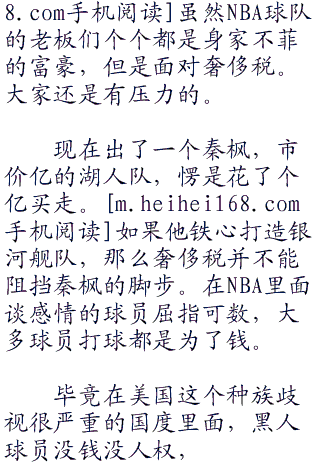 8.com手机阅读]虽然NBA球队
的老板们个个都是身家不菲
的富豪，但是面对奢侈税。
大家还是有压力的。
现在出了一个秦枫，市
价亿的湖人队，愣是花了个
亿买走。[m.heihei168.com
手机阅读]如果他铁心打造银
河舰队，那么奢侈税并不能
阻挡秦枫的脚步。在NBA里面
谈感情的球员屈指可数，大
多球员打球都是为了钱。
毕竟在美国这个种族歧
视很严重的国度里面，黑人
球员没钱没人权，